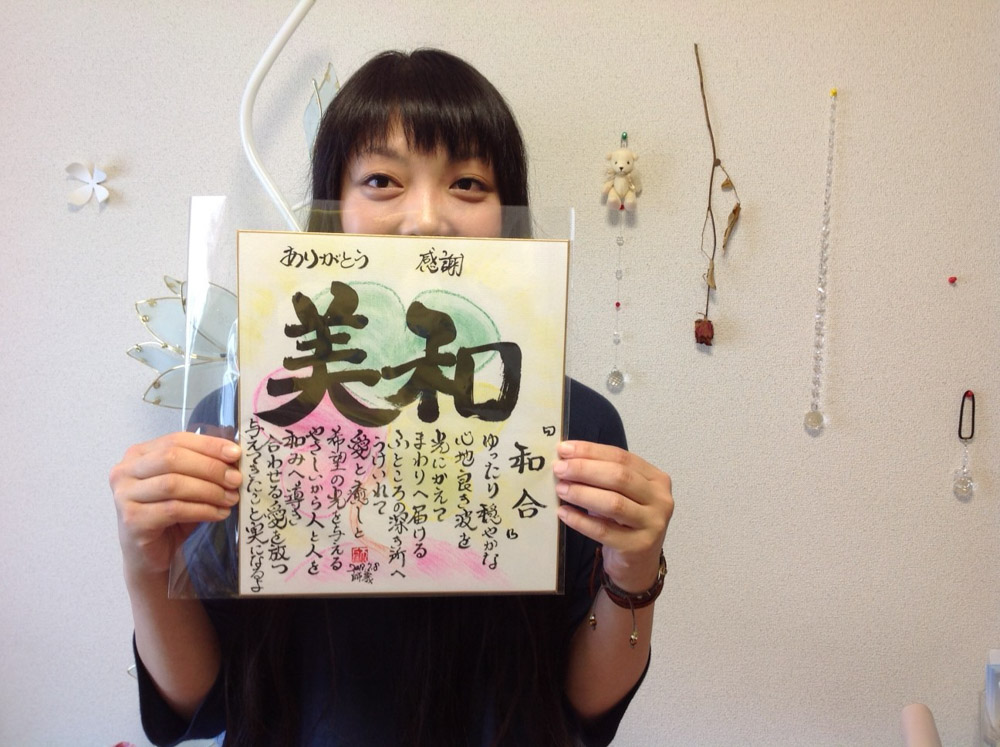 ありがとう　感謝
美和
『和合』
ゆったり穏やかな
心地良き波を
光にかえて
まわりへ届ける
ふところの深き所へ
うけいれて
愛と癒しと
希望の光を与える
やさしいから人と人を
和みへ導き
合わせる愛を放つ
与えてきたこと実になるよ